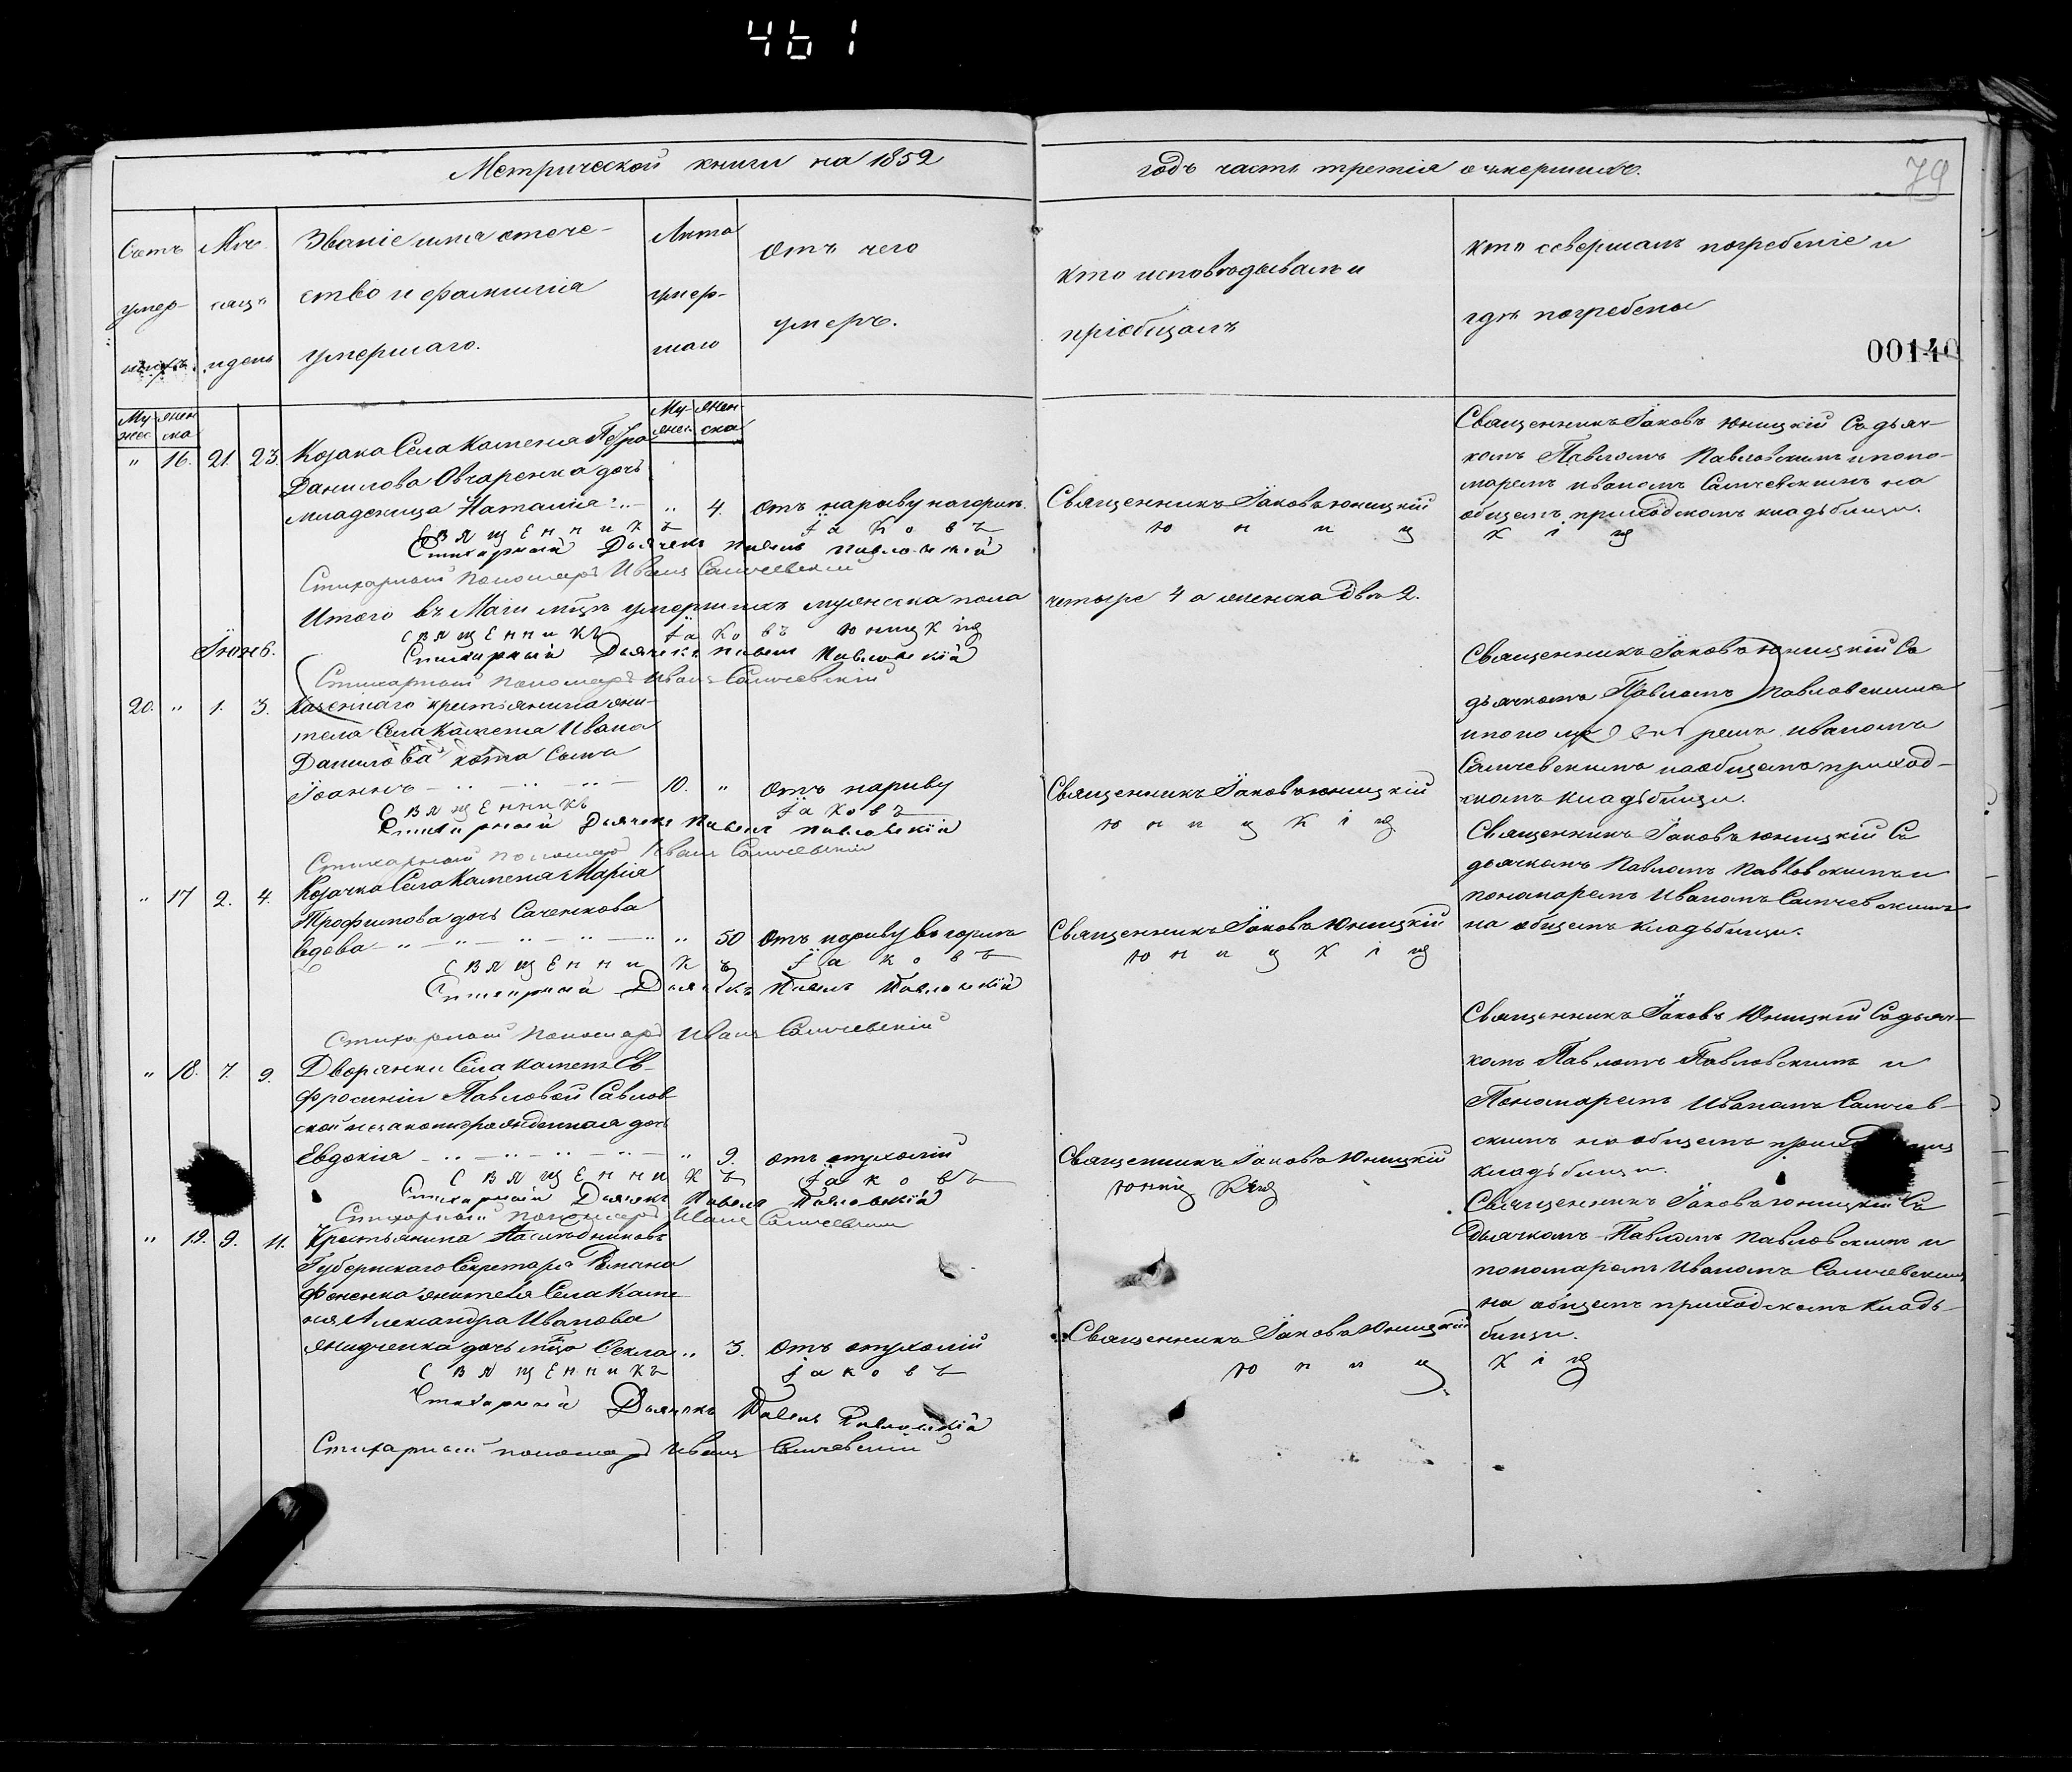 461
Метрической книги на 1852
годъ часть третія о умершихъ.
79
Счетъ умер-
Мѣ- сяцъ и день
Званіе имя отече-
ство и фамилія
умершаго.
Лѣта
умер-
шаго
Отъ чего
умеръ.
кто исповѣдывалъ и
пріобщалъ
кто совершалъ погребеніе и
гдѣ погребены
00140
Му-
жес
жен
ска
Му-
жес.
Жен-
ска
" 16. 21. 23. Козака Села Каменя Петра
Данилова Овчаренка дочь
младеница Наталія " 4. отъ нариву на горлѣ.
Священникъ Іаковъ Юницкій
Священникъ Іаковъ Юницкій Съ дьяч-
комъ Павломъ Павловскимъ и поно-
маремъ Иваномъ Самчевскимъ на
общемъ приходскомъ кладьбищи.
Священникъ Іаковъ Юницкій
Стихарный Дьячекъ Павелъ Павловскій
Стихарный Пономарь Иванъ Самчевскій
Итого въ Маіи мцѣ умершихъ мужеска пола четыре 4 а женска два 2.
Священникъ Іаковъ Юницкій
Стихарный Дьячекъ Павелъ Павловскій
Стихарный Пономарь Иванъ Самчевскій
20. " 1. 3. Казенного крестьянина жи-
теля Села Каменя Ивана
Данилова Кота Сынъ
Іоаннъ 10. " Отъ нариву
Священникъ Іаковъ Юницкій
Священникъ Іаковъ Юницкій Съ
дьячкомъ Павломъ Павловскимъ
и пономаремъ Иваномъ
Самчевскимъ на общемъ приход-
скомъ кладьбищи.
Священникъ Іаковъ Юницкій
Стихарный Дьячекъ Павелъ Павловскій
Стихарный Пономарь Иванъ Самчевскій
" 17 2. 4. Козачка Села Каменя Марія
Трофимова дочь Саченкова
вдова " 50 Отъ нариву въ горлѣ
Священникъ Іаковъ Юницкій
Священникъ Іаковъ Юницкій Съ
дьячкомъ Павломъ Павловскимъ и
пономаремъ Иваномъ Самчевскимъ
на общемъ кладьбищи.
Священникъ Іаковъ Юницкій
Стихарный Дьячекъ Павелъ Павловскій
Стихарный Пономарь Иванъ Самчевскій
" 18. 7. 9. Дворянки Села Каменя Ев-
фросиніи Павловой Савлов-
ской незаконнорожденная дочь
Евдокія " 9. отъ опухолій
Священникъ Іаковъ Юницкій
Священникъ Іаковъ Юницкій Съ дьяч-
комъ Павломъ Павловскимъ и
Пономаремъ Иваномъ Самчев-
скимъ на общемъ
кладьбищи.
Священникъ Іаковъ Юницкій
Стихарный Дьячекъ Павелъ Павловскій
Стихарный Пономарь Иванъ Самчевскій
" 19. 9. 11. Крестьянина Наслѣдниковъ
Губернскаго Секретаря Романа
Фененка жителя Села Каме-
ня Александра Иванова
дочь Секла " 3. Отъ опухолій
Священникъ Іаковъ Юницкій
Священникъ Іаковъ Юницкій Съ
Дьячкомъ Павломъ Павловскимъ и
пономаремъ Иваномъ Самчевскимъ
на общемъ приходскомъ кладь-
бищи.
Священникъ Іаковъ Юницкій
Стихарный Дьячекъ Павелъ Павловскій
Стихарный пономарь Иванъ Самчевскій